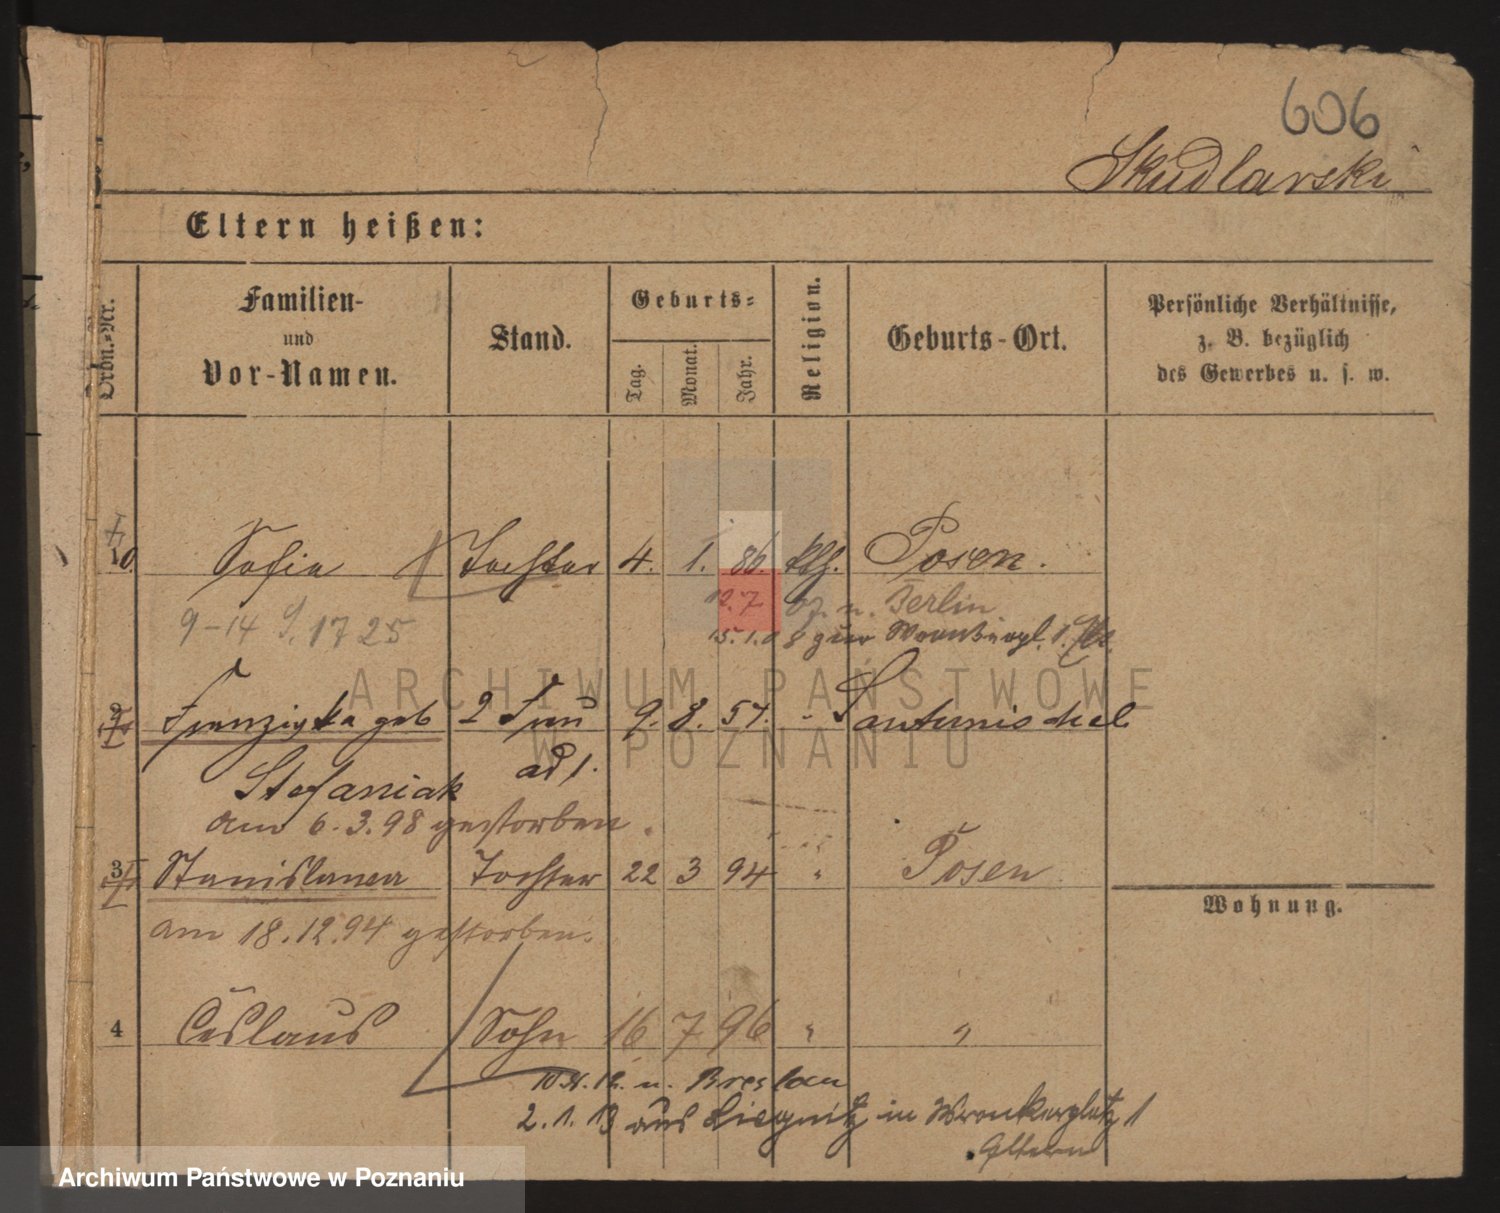 606
Skudlarski
Eltern heißen:
Ordn.-Nr.
Familien-
und
Vor-Namen.
Stand.
Geburts-
Tag.
Monat.
Jahr.
Religion.
Geburts-Ort.
Persönliche Verhältnisse,
z. B. bezüglich
des Gewerbes u. s. w.
10. Sofie Tochter 4. 1. 86. kth. Posen.
12.7 n. Berlin
9-14 1725
15.1.08 zur
ARCHIWUM PAŃSTWOWE
W POZNANIU
2 Franziska geb 2 Frau 9. 8. 57. " Santomischel
Stefaniak ad 1.
am 6.3.98 gestorben.
3 Stanislawa Tochter 22 3 94 " Posen
Wohnung.
am 18.12.94 gestorben.
4 Ceslaus Sohn 16 7 96 " "
n. Breslau
2.1.13 aus Liegnitz in Wronkerplatz 1
Eltern
Archiwum Państwowe w Poznaniu